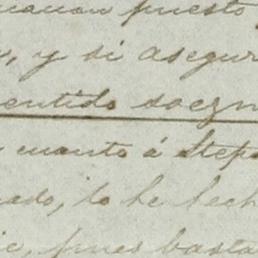 puesto
, y si asegur
sentido soezn
cuanto á Stepa
ado, to he hech
ie, pues basta